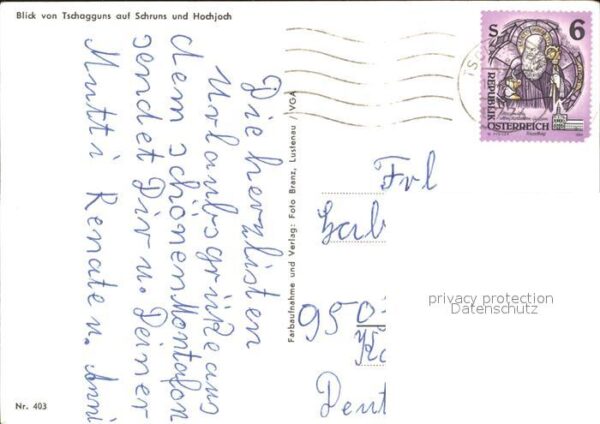 Blick von Tschagguns auf Schruns und Hochjoch
Die herzlisten
Urlaubsgrüße aus
dem schönen Montafon
sendet Dir u. Deiner
Mutti Renate u. Anni
Nr. 403
Farbaufnahme und Verlag: Foto Branz, Lustenau / VGA
S 6
REPUBLIK
ÖSTERREICH
TSC
Frl
Gab
950
Deut
privacy protection
Datenschutz